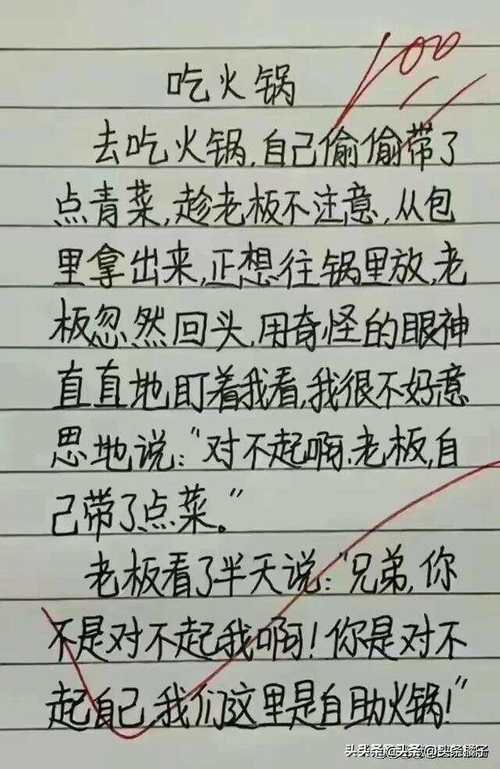 100
吃火锅
去吃火锅,自己偷偷带了
点青菜,趁老板不注意,从包
里拿出来,正想往锅里放,老
板忽然回头,用奇怪的眼神
直直地盯着我看,我很不好意
思地说:“对不起啊.老板,自
己带了点菜。”
老板看了半天说:“兄弟,你
不是对不起我啊!你是对不
起自己,我们这里是自助火锅!”